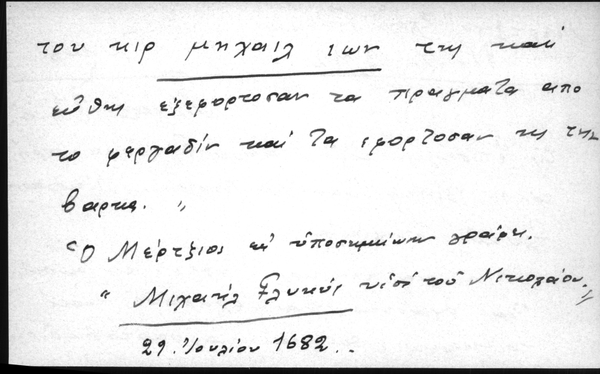 του κιρ μηχαιλ ιων της και
εὐθης εξεφορτοσαν τα πραγματα απο
το φεργαδίν και τα εφορτοσαν εις την
βαρκα. "
Ὁ Μέρτζιος ἐν ὑποσημειώσει γράφει.
" Μιχαήλ Γλυκύς υἱός τοῦ Νικολάου. "
29 Ἰουλίου 1682..